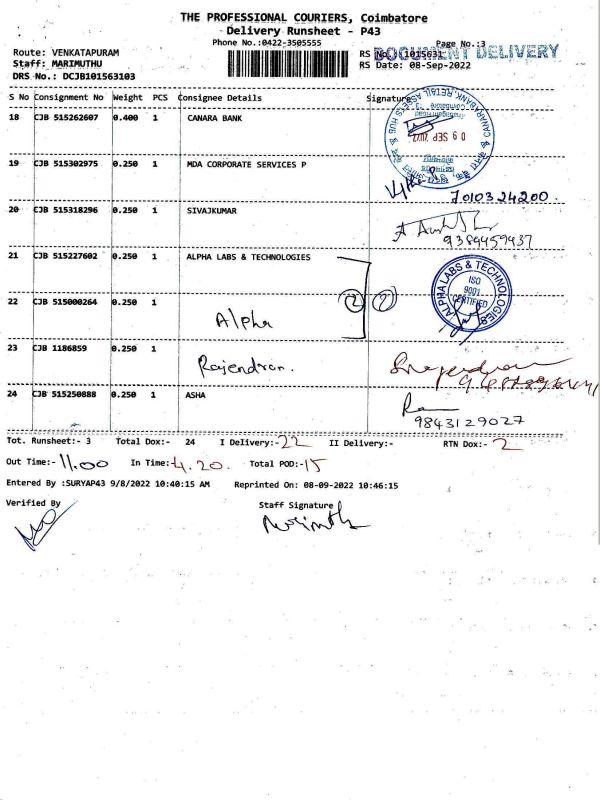 THE PROFESSIONAL COURIERS, Coimbatore
Delivery Runsheet - P43
Phone No.:0422-3505555
Page No.:3
DOCUMENT DELIVERY
Route: VENKATAPURAM
RS No.: 1015631
Staff: MARIMUTHU
RS Date: 08-Sep-2022
DRS No.: DCJB101563103
S No Consignment No Weight PCS Consignee Details Signature
18 CJB 515262607 0.400 1 CANARA BANK
CANARA BANK, RETAIL ASSETS HUB
Coimbatore
0 9 SEP 2022
19 CJB 515302975 0.250 1 MDA CORPORATE SERVICES P
7010324200.
20 CJB 515318296 0.250 1 SIVAJKUMAR
9389459437
21 CJB 515227602 0.250 1 ALPHA LABS & TECHNOLOGIES
ALPHA LABS & TECHNOLOGIES
ISO
9001
CERTIFIED
22 CJB 515000264 0.250 1
2
Alpha
23 CJB 1186859 0.250 1
Rajendran.
24 CJB 515250888 0.250 1 ASHA
9843129027
Tot. Runsheet:- 3 Total Dox:- 24 I Delivery:- 22 II Delivery:- RTN Dox:- 2
Out Time:- 11.00 In Time:- 4.20. Total POD:- 15
Entered By :SURYAP43 9/8/2022 10:40:15 AM Reprinted On: 08-09-2022 10:46:15
Verified By Staff Signature